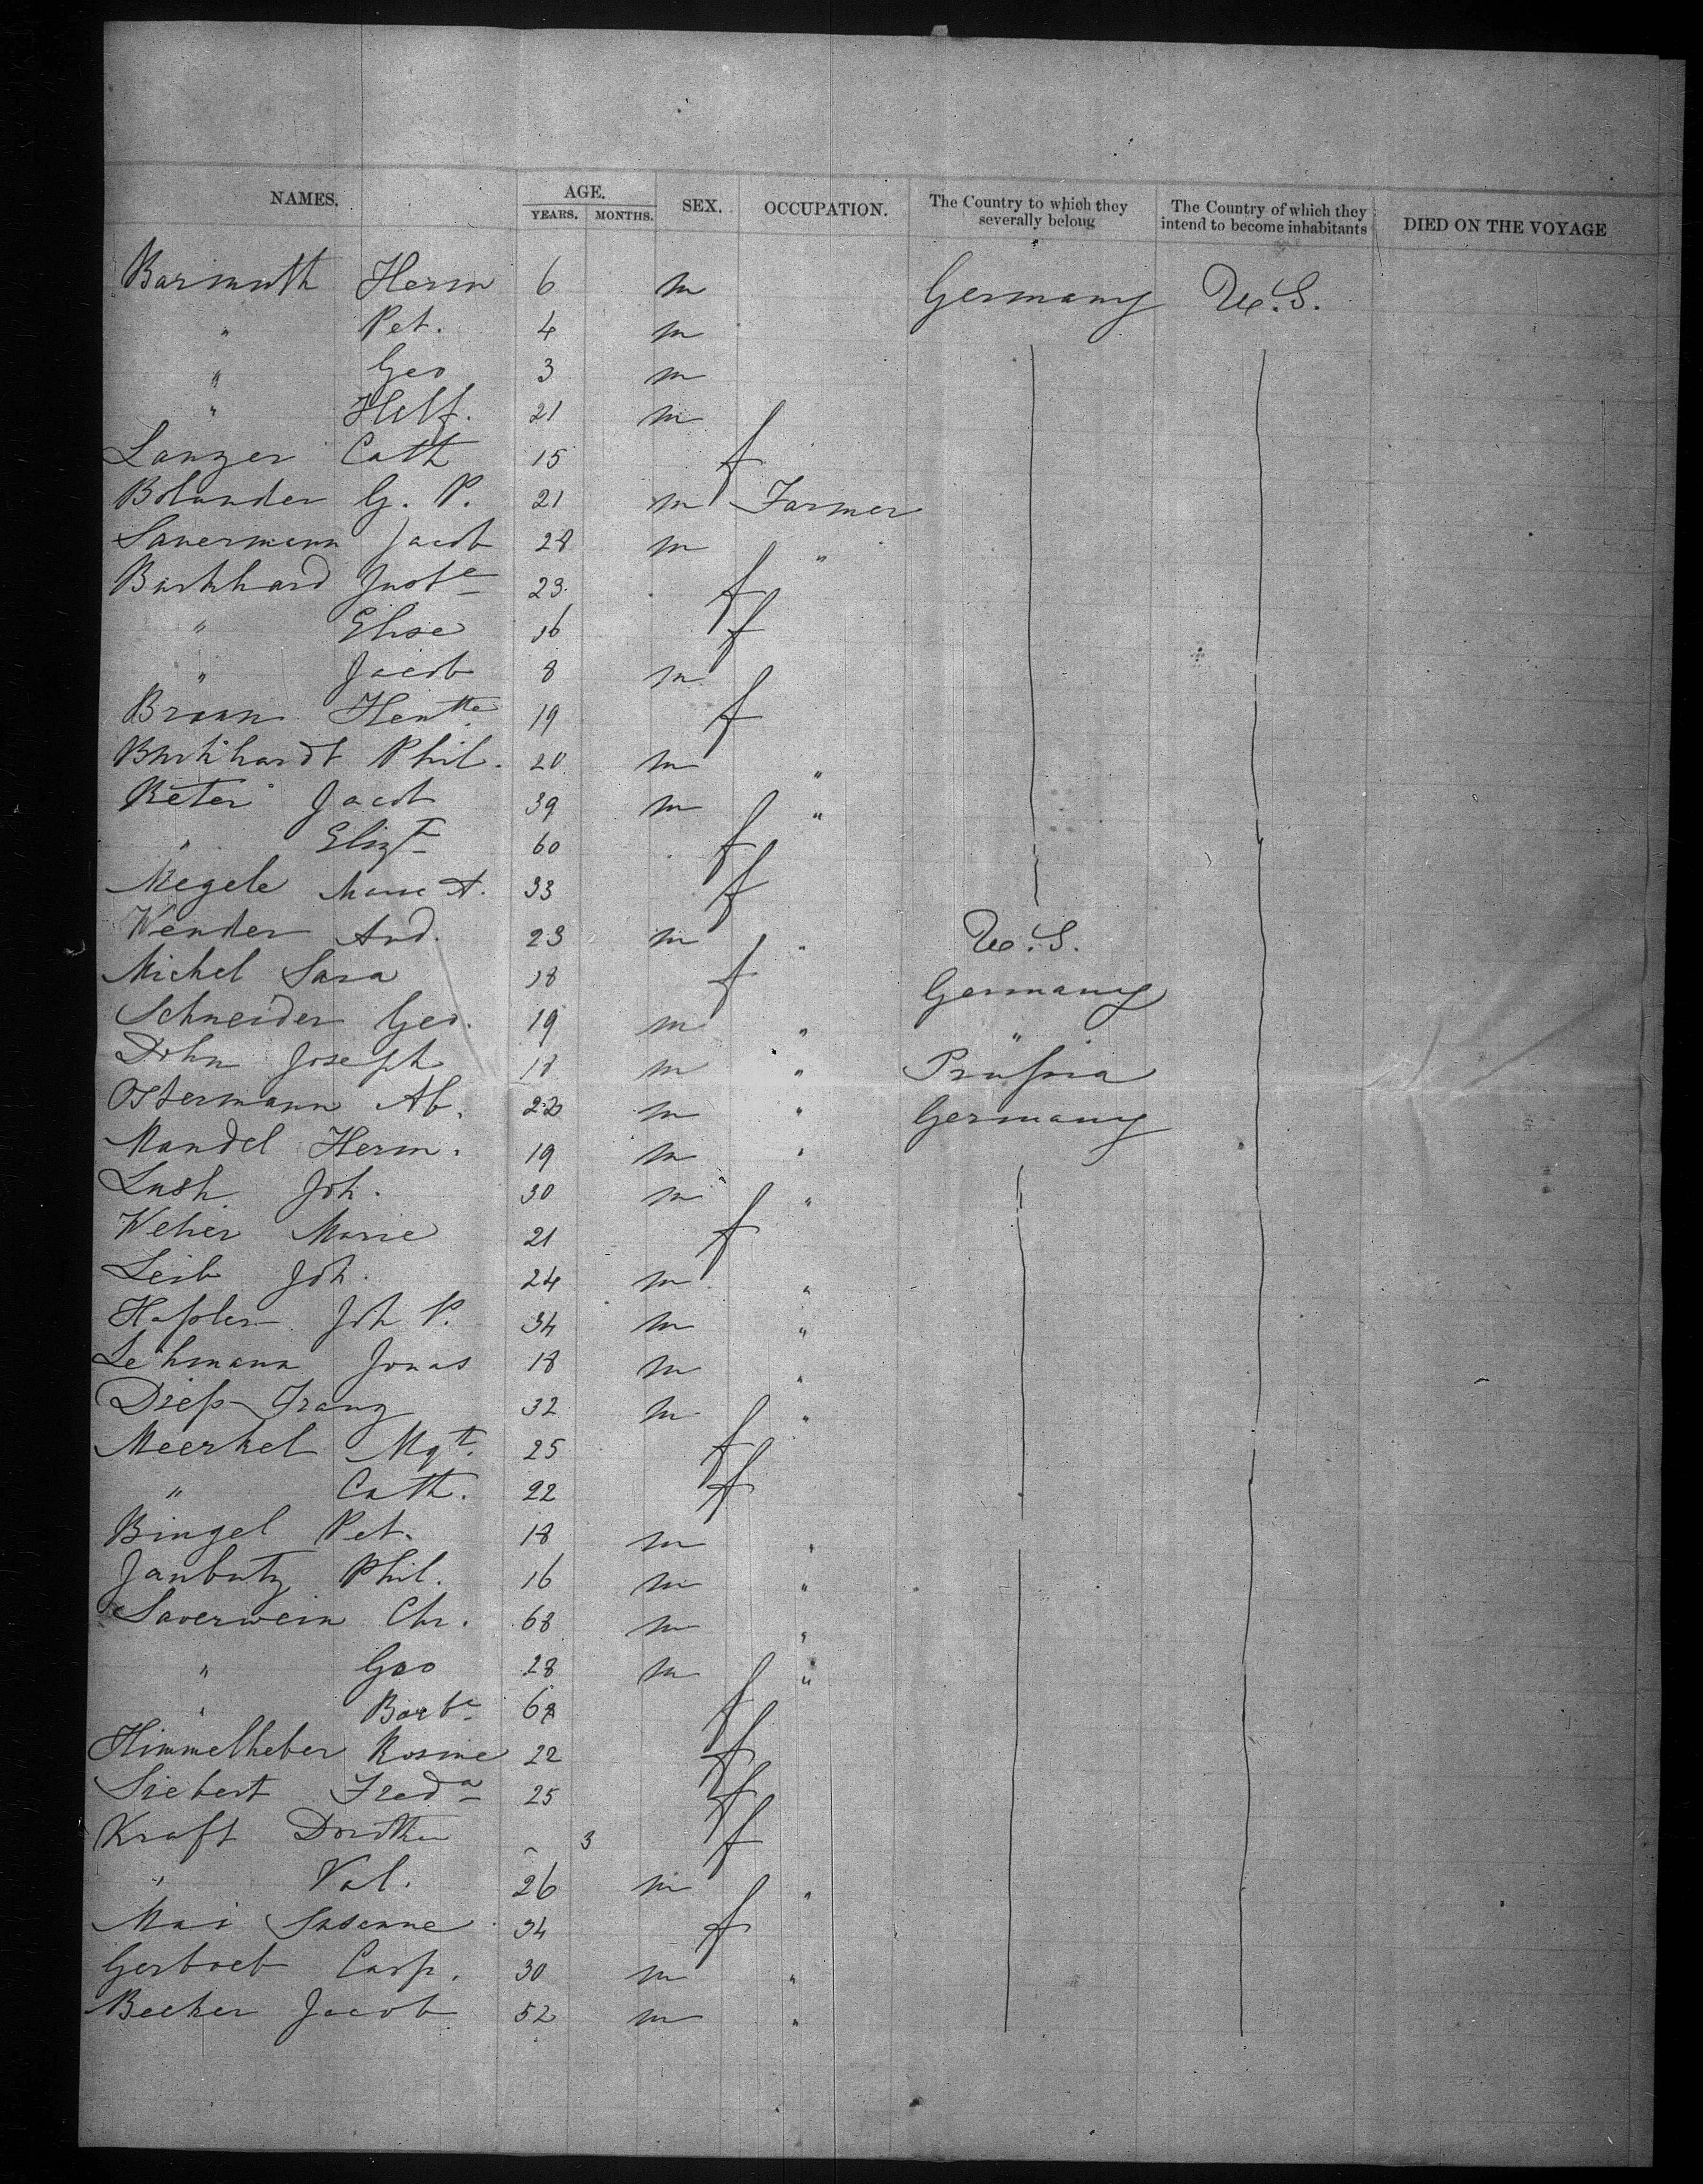 NAMES. AGE. SEX. OCCUPATION. The Country to which they severally belong The Country of which they intend to become inhabitants DIED ON THE VOYAGE
YEARS. MONTHS.
Barmuth Herm 6 m Germany U.S.
" Pet. 4 m
" Geo 3 m
" 21 m
Lanzer Cath 15 f
Bolander G. P. 21 m Farmer
Sauermann Jacob 28 m "
Burkhard Juste 23 f
" Elise 16 f
" Jacob 8 m
Braun Hentte 19 f
Burkhardt Phil. 20 m "
Peter Jacob 39 m "
" Elizth 60 f
Megele Marie A. 33 f
Wender And. 23 m " U.S.
Michel Sara 18 f Germany
Schneider Geo. 19 m " "
Dohn Joseph 18 m " Prussia
Ostermann Ab. 22 m " Germany
Mandel Herm. 19 m "
Lush Joh. 30 m "
Weher Marie 21 f
Leib Joh. 24 m "
Hassler Joh P. 34 m "
Lehmann Jonas 18 m "
Diess Franz 32 m "
Meerkel Mgt. 25 f
" Cath. 22 f
Bingel Pet. 18 m "
Janbutz Phil. 16 m "
Saverwein Chr. 68 m "
" Geo 28 m "
" Barbe 68 f
Himmelheber Rosine 22 f
Siebert Freda 25 f
Kraft Dorothea - 3 f
" Val. 26 m "
Mai Susanne 34 f
Casp. 30 m "
Becker Jacob 52 m "